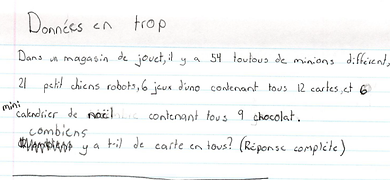 Données en trop
Dans un magasin de jouet, il y a 54 toutous de minions différent,
21 petit chiens robots, 6 jeux d'uno contenant tous 12 cartes, et 6
mini calendrier de noël contenant tous 9 chocolat.
combiens
y a t-il de carte en tous? (Réponse complète)